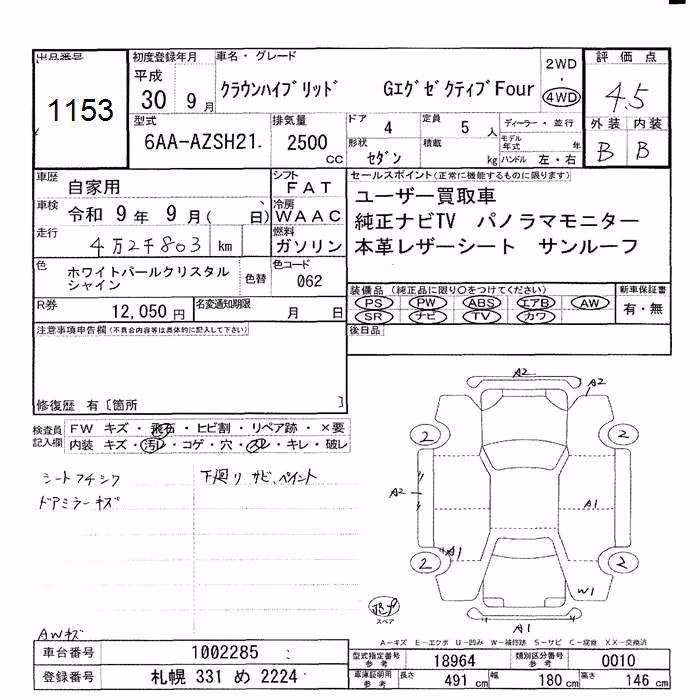 出品番号 初度登録年月 車名・グレード 2WD 評価点
1153 平成 30 9月 クラウンハイブリッド GエグゼクティブFour ・ 4WD 4.5
型式 排気量 ドア 4 定員 5 人 ディーラー・並行 外装 内装
6AA-AZSH21. 2500 CC 形状 セダン 積載 kg モデル年式 年 ハンドル 左・右 B B
車歴 自家用 シフト FAT セールスポイント(正常に機能するものに限ります)
車検 令和 9年 9月( 、日) 冷房 WAAC ユーザー買取車
走行 4万2千803 km 燃料 ガソリン 純正ナビTV パノラマモニター
本革レザーシート サンルーフ
色 ホワイトパールクリスタルシャイン 色替 色コード 062
装備品(純正品に限り○をつけてください) 新車保証書
PS PW ABS エアB AW 有・無
SR ナビ TV カワ
R券 12,050円 名変通知期限 月 日
後日品
注意事項申告欄(不具合内容等は具体的に記入して下さい)
修復歴 有〔箇所 〕
検査員記入欄 FW キズ・飛石・ヒビ割・リペア跡・×要
内装 キズ・汚レ・コゲ・穴・スレ・キレ・破レ
シートフチシワ 下廻り サビ、ペイント
ドアミラーキズ
AWキズ
A2
A2
2 2
A2
A1
A1
2 2
W1
スペア
A1
A-キズ E-エクボ U-凹み W-補修跡 S-サビ C-腐食 XX-交換済
車台番号 1002285 型式指定番号 参考 18964 類別区分番号 参考 0010
登録番号 札幌 331 め 2224 車庫証明用 参考 長さ 491 cm 幅 180 cm 高さ 146 cm